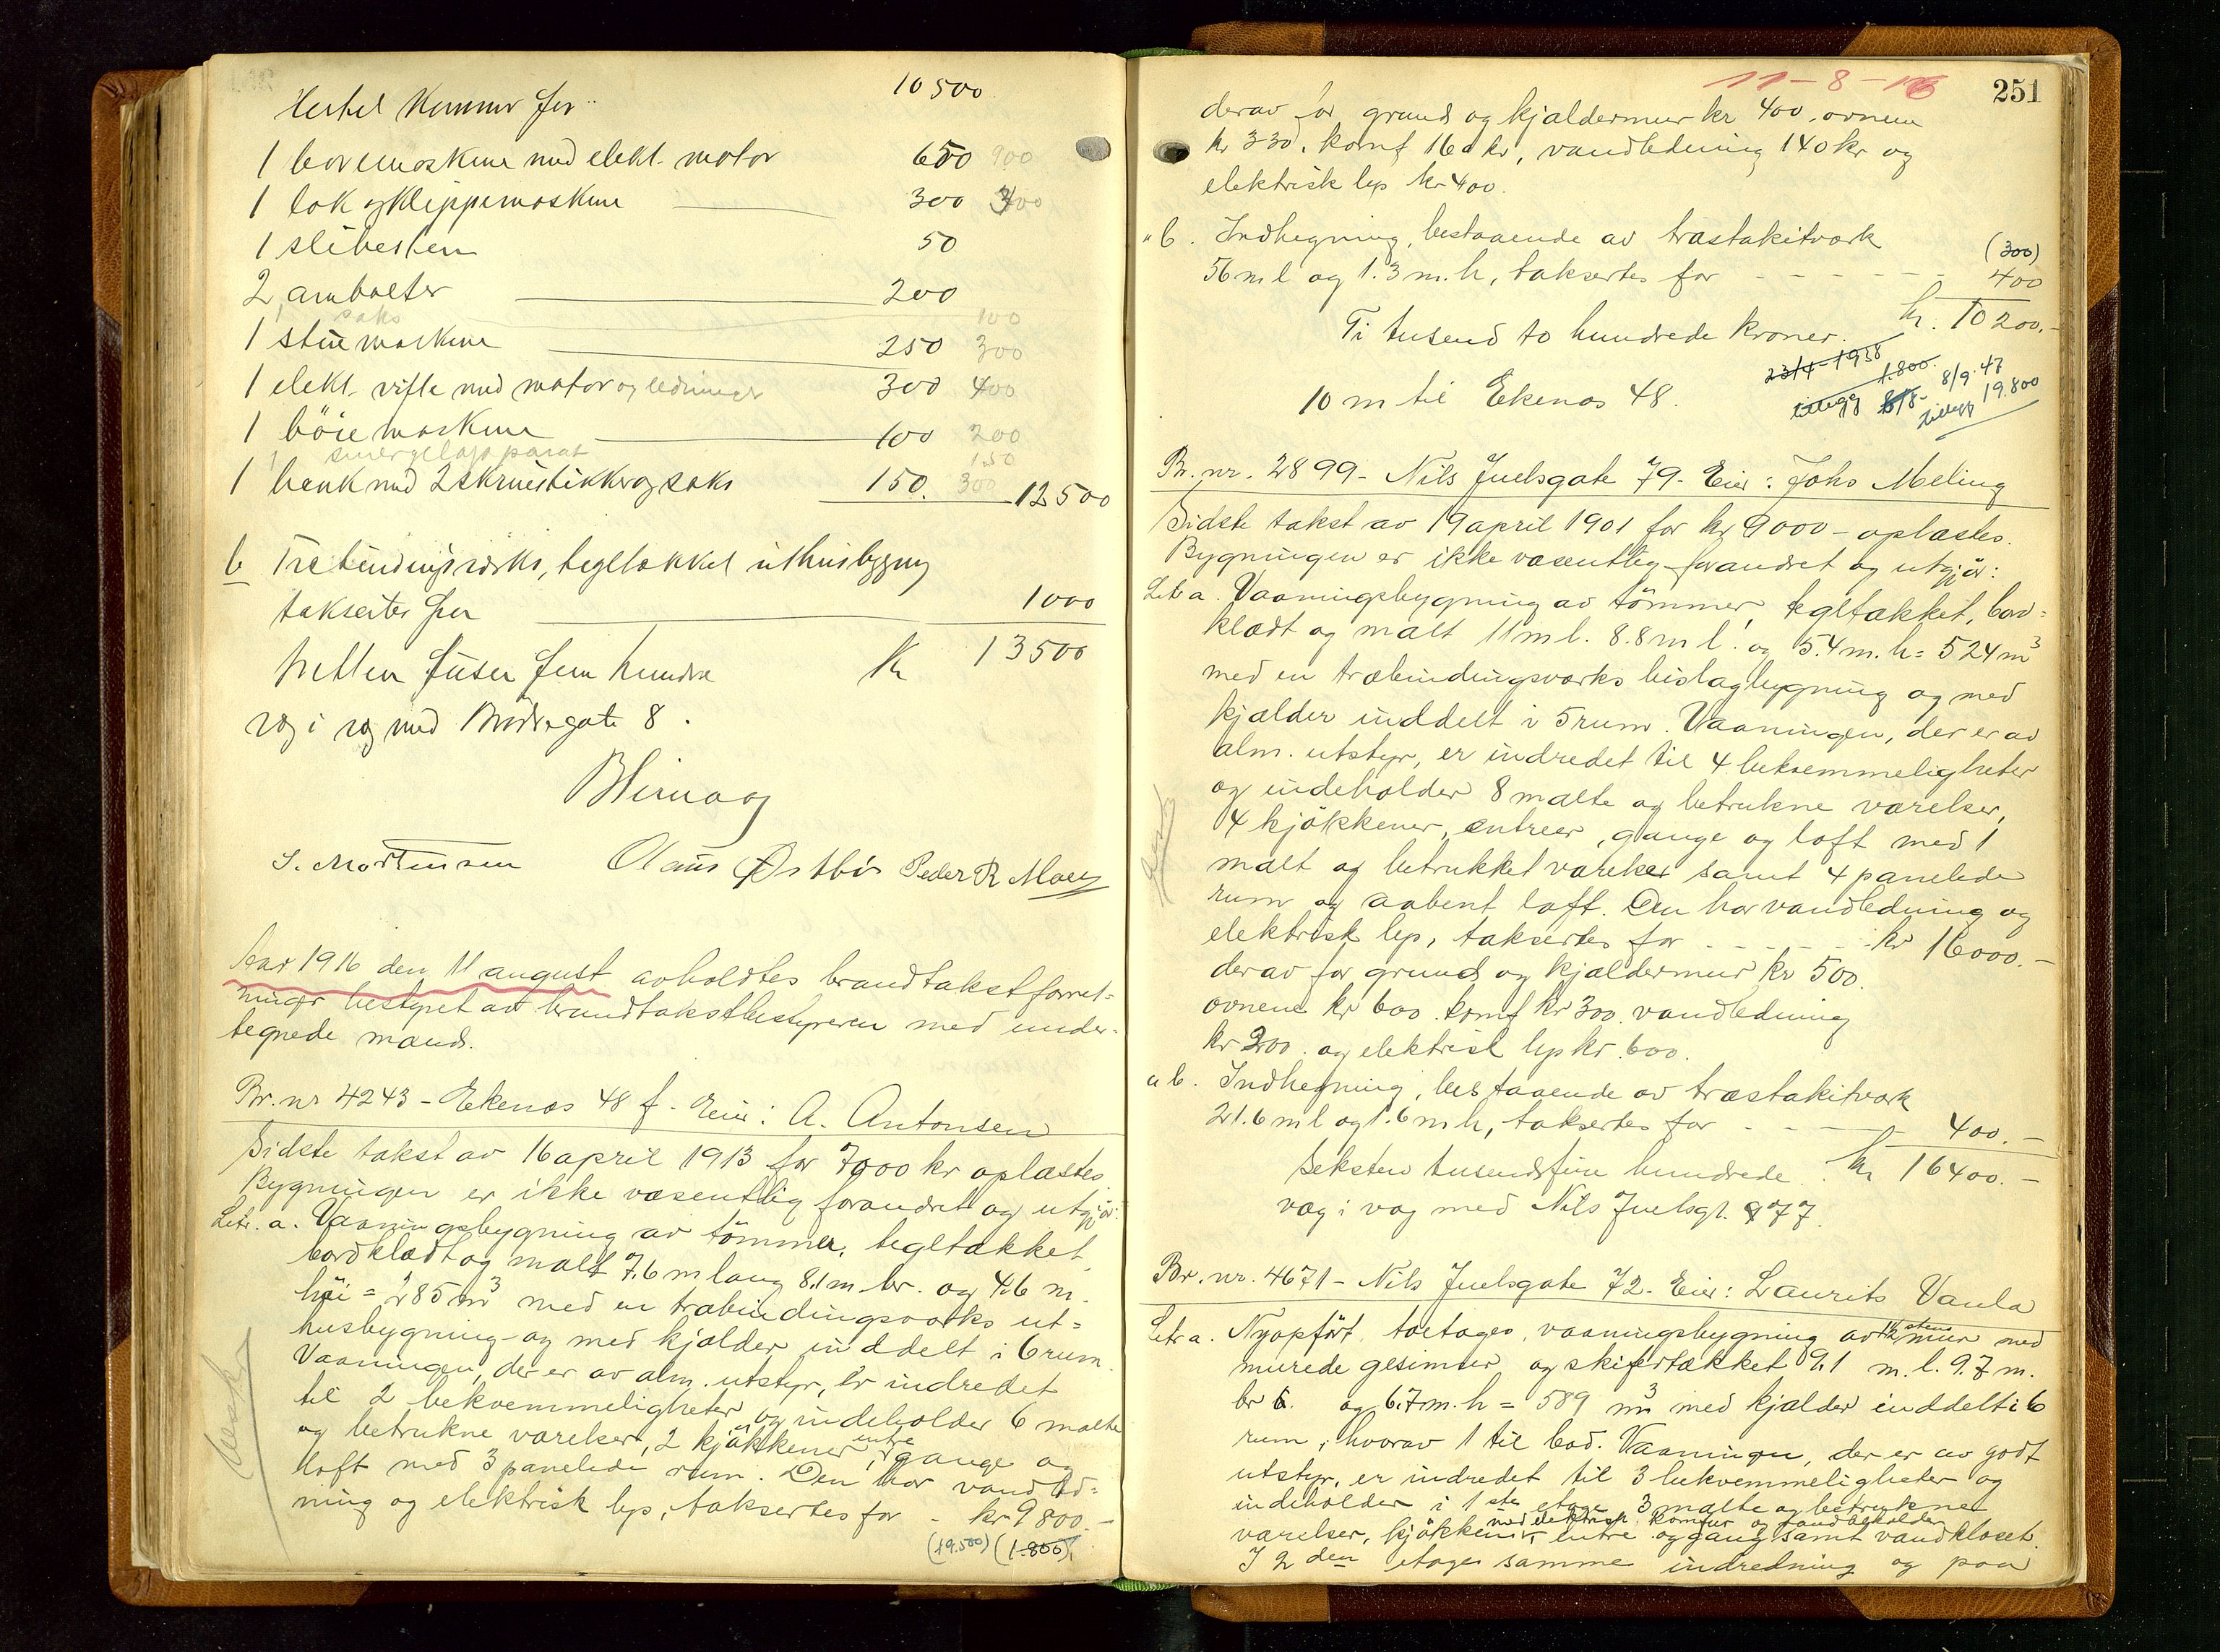 Hertil kommer for 10500
1 boremaskine med elekt. motor 650 900
1 lok og klippemaskine 300 300
1 slibesten 50
2 ambolter 200
1 saks 100
1 stuemaskine 250 300
1 elekt. vifte med motor og ledninger 300 400
1 böiemaskine 100 200
1 smergelapparat 150
1 benk med 2 skruestikker og saks 150. 300 12500
b Træbindingsverks, tegltækket uthusbygning
takseres for 1000
tretten tusen fem hundre Kr 13500
væg i væg med Brödregate 8.
S. Mortensen Olaus Østbö Peder R. Moey
Aar 1916 den 11 august avholdtes brandtakstforret-
ninger bestyret av brandtakstbestyreren med under-
tegnede mænd.
Br. nr 4243 - Ekenæs 48 f. - Eier: A. Antonsen
Sidste takst av 16 april 1913 for 7000 kr oplæstes.
Bygningen er ikke væsentlig forandret og utgjör:
Litr. a. Vaaningsbygning av tömmer, tegltækket,
bordklædt og malt 7.6 m lang 8.1 m br. og 4.6 m.
höi = 285 m³ med en træbindingsværks ut-
husbygning og med kjælder inddelt i 6 rum.
Vaaningen, der er av alm. utstyr, er indredet
til 2 bekvemmeligheter og indeholder 6 malte
og betrukne værelser, 2 kjökkener, entre, gange og
loft med 3 panelede rum. Den har vandled-
ning og elektrisk lys, taksertes for - kr 9800.-
(19.500) (1.800)
11-8-16 251
derav for grund og kjældermur kr 400, ovnene
kr 330, komf 160 kr, vandledning 140 kr og
elektrisk lys kr 400.
" b. Indhegning, bestaaende av træstakitværk (300)
56 m l og 1.3 m. h, taksertes for - - - - - - 400
Ti tusend to hundrede kroner. kr. 10200.-
23/4-1938
1.800. 8/9.47
tillegg 19.800
tillegg
10 m til Ekenæs 48.
Br. nr. 2899 - Nils Juelsgate 79 - Eier: Johs Meling
Sidste takst av 19 april 1901 for kr 9000 - oplæstes.
Bygningen er ikke væsentlig forandret og utgjör:
Litr a. Vaaningsbygning av tömmer, tegltækket, bord-
klædt og malt 11 m l. 8.8 m l. og 5.4 m. h = 524 m³
med en træbindingsværks bislagbygning og med
kjælder inddelt i 5 rum. Vaaningen, der er av
alm. utstyr, er indredet til 4 bekvemmeligheter
og indeholder 8 malte og betrukne værelser,
4 kjökkener, entreer, gange og loft med 1
malt og betrukket værelse samt 4 panelede
rum og aabent loft. Den har vandledning og
elektrisk lys, taksertes for - - - - - - kr 16000.-
derav for grund og kjældermur kr 500.
ovnene kr 600. komf kr 300. vandledning
kr 200. og elektrisk lys kr. 600.
" b. Indhegning, bestaaende av træstakitværk
21.6 m l og 1.6 m h, taksertes for - - - - - 400.-
seksten tusend fire hundrede . kr 16400.-
væg i væg med Nils Juelsgt. 77.
Br. nr. 4671 - Nils Juelsgate 72 - Eier: Laurits Vaula
Litr a. Nyopfört, toetages, vaaningsbygning av 1½ stens mur med
murede gesimser og skifertækket 9.1 m. l. 9.7 m.
br. og 6.7 m. h = 589 m³ med kjælder inddelt i 6
rum, hvorav 1 til bad. Vaaningen, der er av godt
utstyr, er indredet til 3 bekvemmeligheter og
indeholder i 1ste etage 3 malte og betrukne
værelser, kjökken med elektrisk komfur og vandbeholder, entre og gang samt vandkloset.
I 2den etage samme indredning og paa